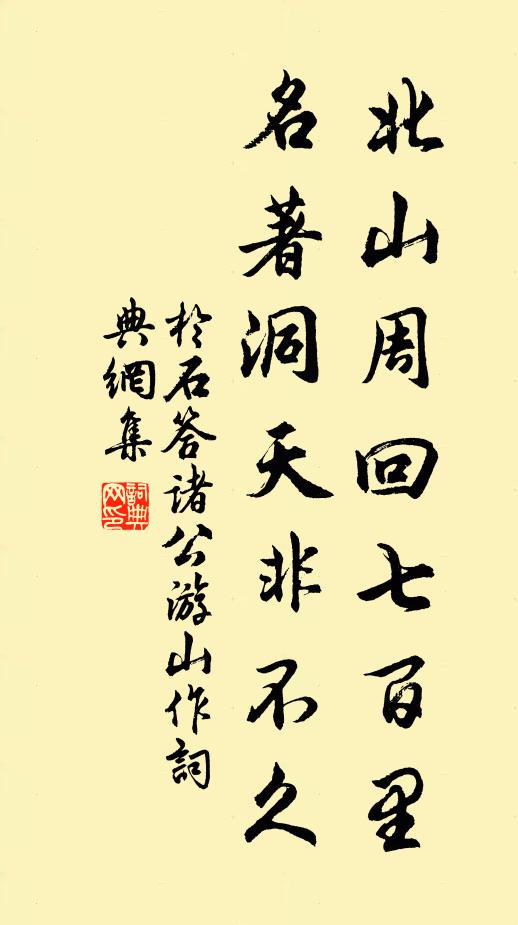 北山周回七百里
名著洞天非不久
於石答諸公游山作詞
典網集
詞典
网印